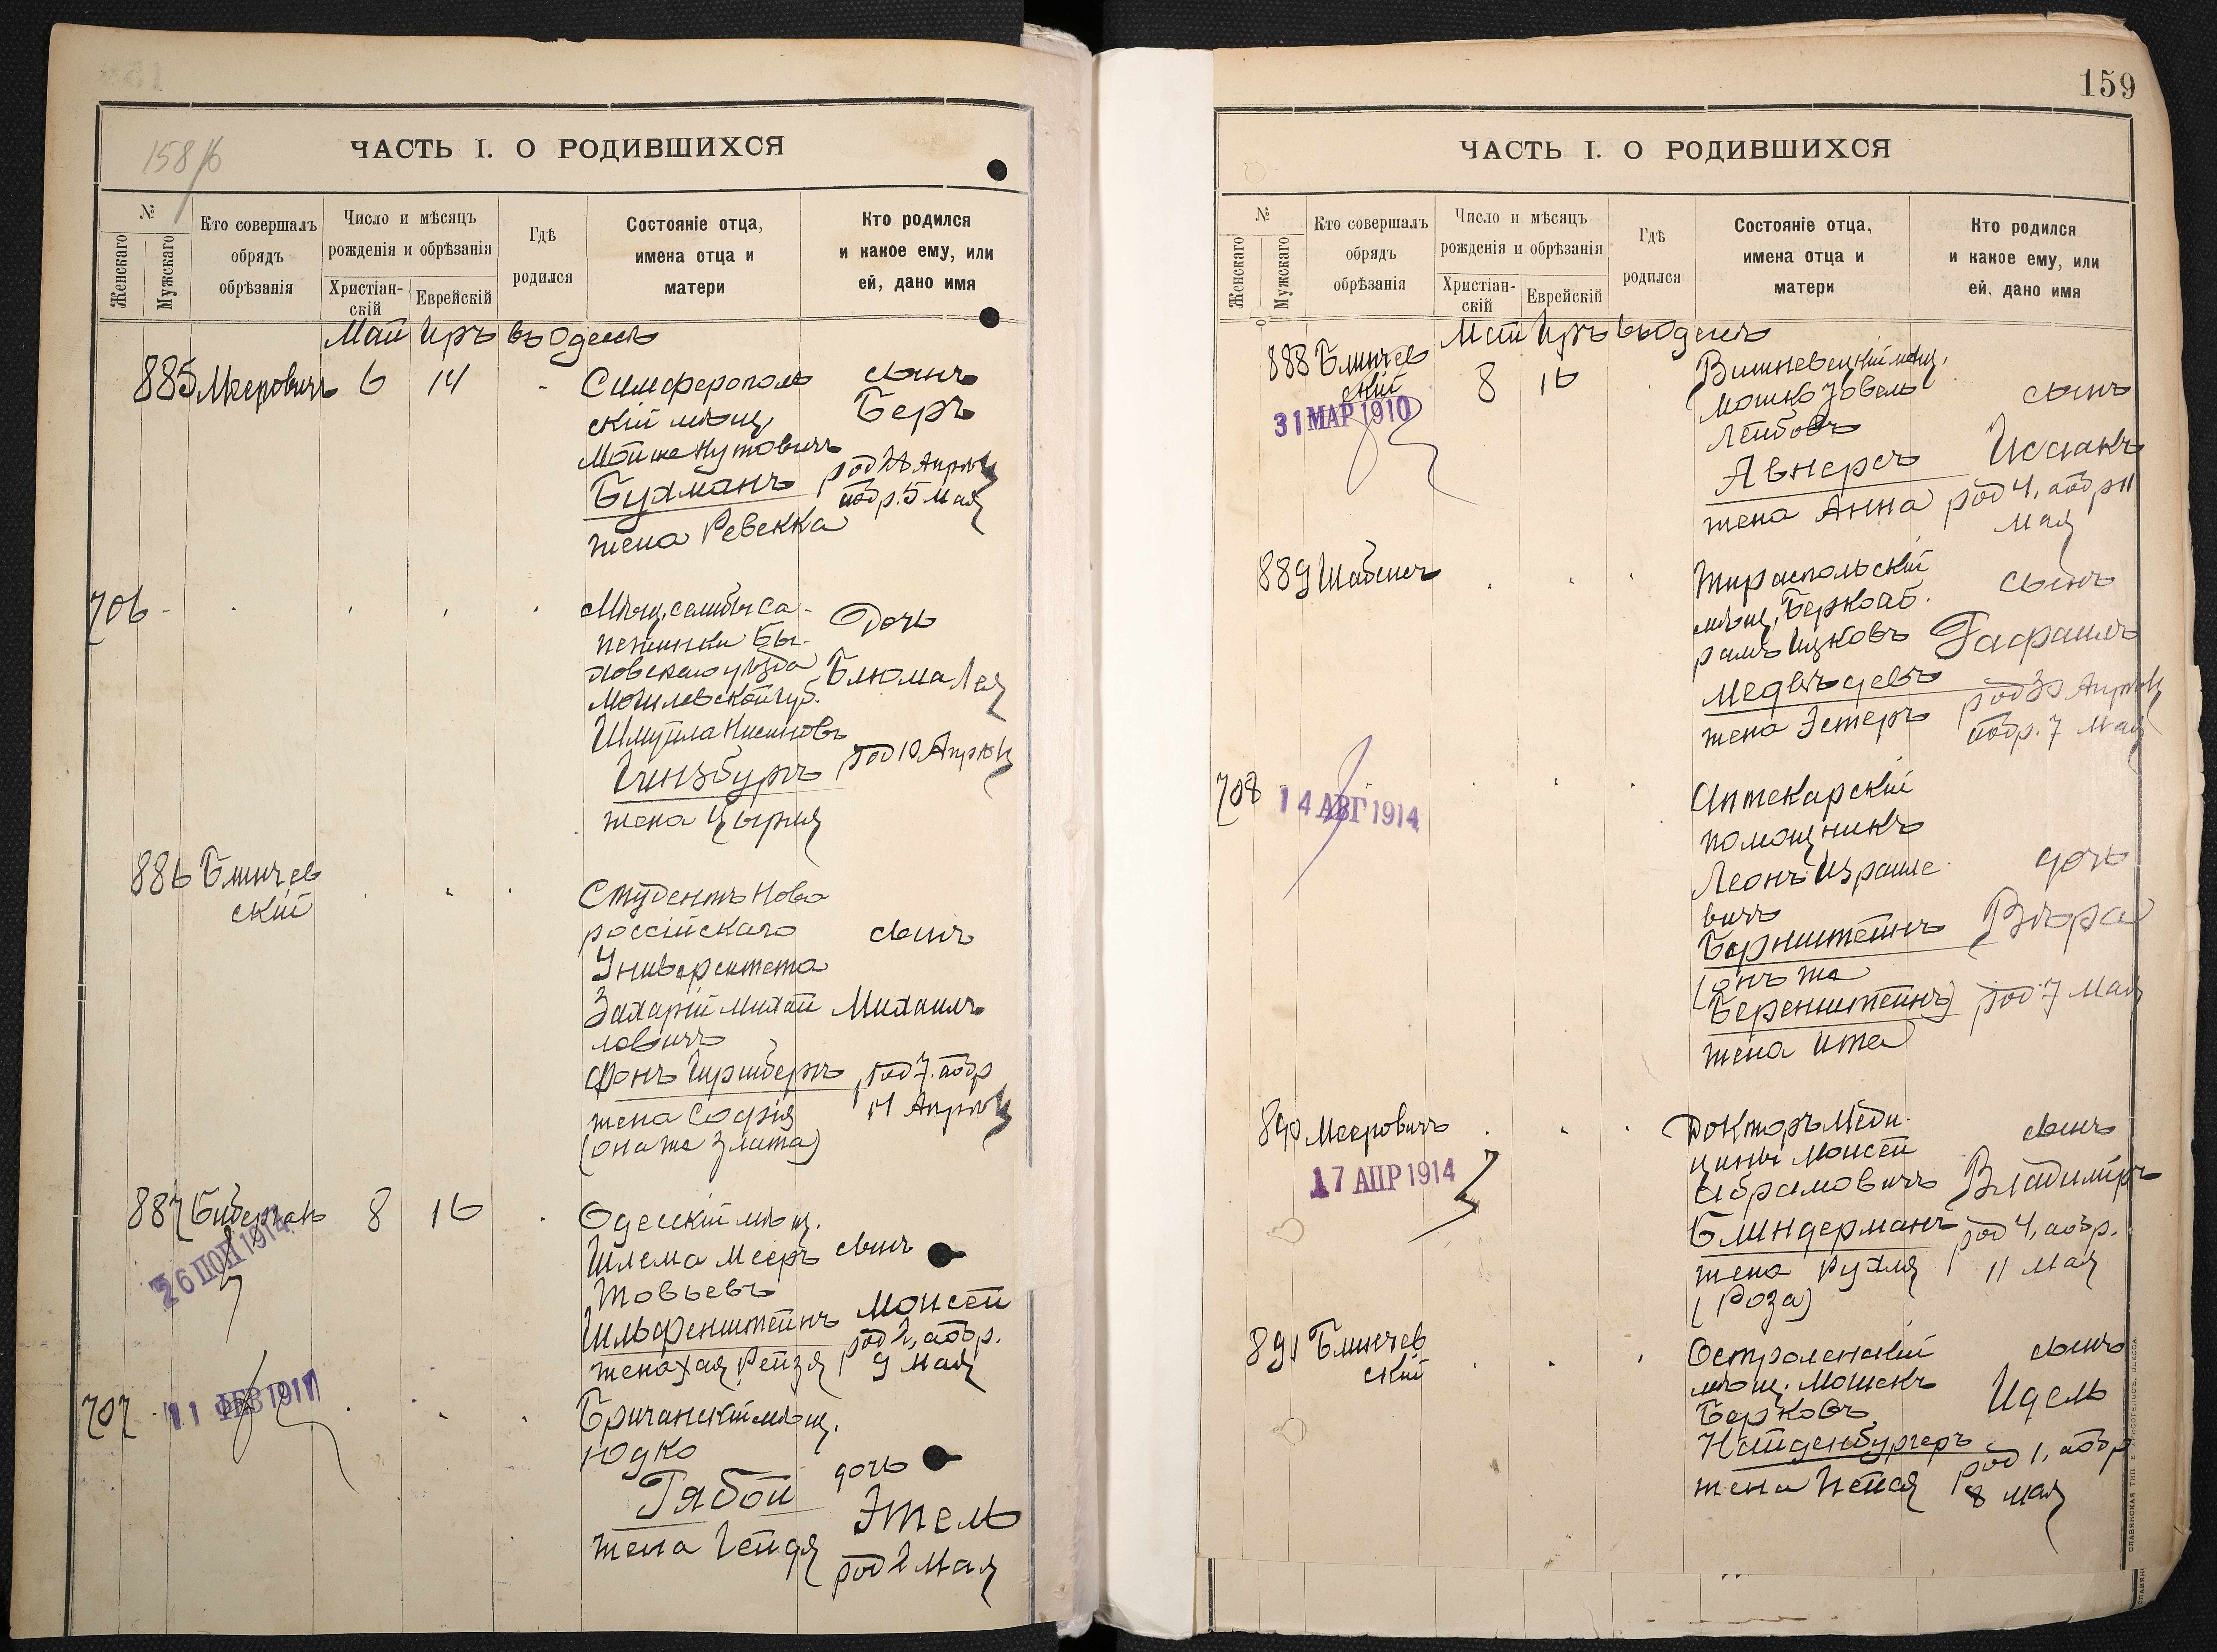 158 /б
ЧАСТЬ I. О РОДИВШИХСЯ
№
Женскаго
Мужскаго
Кто совершалъ
обрядъ
обрѣзанія
Число и мѣсяцъ
рожденія и обрѣзанія
Христіан-
скій
Еврейскій
Гдѣ
родился
Состояніе отца,
имена отца и
матери
Кто родился
и какое ему, или
ей, дано имя
Май Иръ въ Одессѣ
885 Мееровичъ 6 14
Симферополь
скій мѣщ.
Мойше Нутовичъ
Бухманъ
жена Ревекка
сынъ
Беръ
род 28 Апрѣля
обр. 5 Мая
706
Мѣщ.
Бы-
ховскаго уѣзда
Могилевской губ.
Шмуйла Нисиновъ
Гинзбургъ
жена Цырля
Дочь
Блюма Лея
род 10 Апрѣля
886 Блинчев
скій
Студентъ Ново
россійскаго
Университета
Захарій Михай
ловичъ
фонъ Гиршбергъ
жена Софія
(она же Злата)
сынъ
Михаилъ
род 7. обр
14 Апрѣля
887 Бидерман 8 16
26 ІЮН 1914
Одесскій мѣщ.
Шлема Мееръ
Товьевъ
Шльфенштейнъ
жена Хая Рейзя
сынъ
Моисей
род 2, обр.
9 Мая
707
11 ФЕВ 1911
Бричанскій мѣщ.
Юдко
Рябой
жена Гейдя
дочь
Этель
род 2 Мая
159
ЧАСТЬ I. О РОДИВШИХСЯ
№
Женскаго
Мужскаго
Кто совершалъ
обрядъ
обрѣзанія
Число и мѣсяцъ
рожденія и обрѣзанія
Христіан-
скій
Еврейскій
Гдѣ
родился
Состояніе отца,
имена отца и
матери
Кто родился
и какое ему, или
ей, дано имя
Май Иръ въ Одессѣ
888 Блинчев
скій
8 16
31 МАР 1910
Вишневецкій мѣщ.
Мошко Іовель
Лейбовъ
Авнеръ
жена Анна
сынъ
Исаакъ
род 4, обр 11
Мая
889 Шабсисъ
Тираспольскій
мѣщ. Берко Аб.
рамъ Ицковъ
Медвѣдевъ
жена Эстеръ
сынъ
Рафаилъ
род 30 Апрѣля
обр. 7 Мая
708
14 АВГ 1914
Аптекарскій
помощникъ
Леонъ Израиле
вичъ
Бернштейнъ
(онъ же
Беренштейнъ)
жена Ита
дочь
Вѣра
род 7 Мая
890 Мееровичъ
17 АПР 1914
Докторъ Меди-
цины Моисей
Абрамовичъ
Блиндерманъ
жена Рухля
(Роза)
сынъ
Владиміръ
род 4, обр.
11 Мая
891 Блинчев
скій
Остроленскій
мѣщ. Мошекъ
Берковъ
Найденбургеръ
жена Песя
сынъ
Идель
род 1, обр
8 Мая
СЛАВЯНСКАЯ ТИП.
ОДЕССА